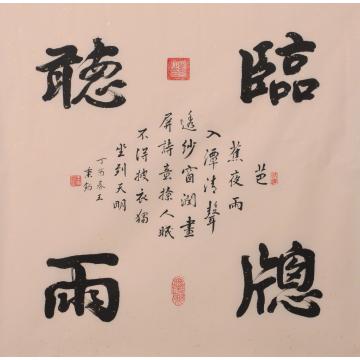 臨牕
聽雨
芭
蕉夜雨
入潭清聲
透紗窗潤畫
屏詩意撩人眠
不得披衣獨
坐到天明
丁酉春王